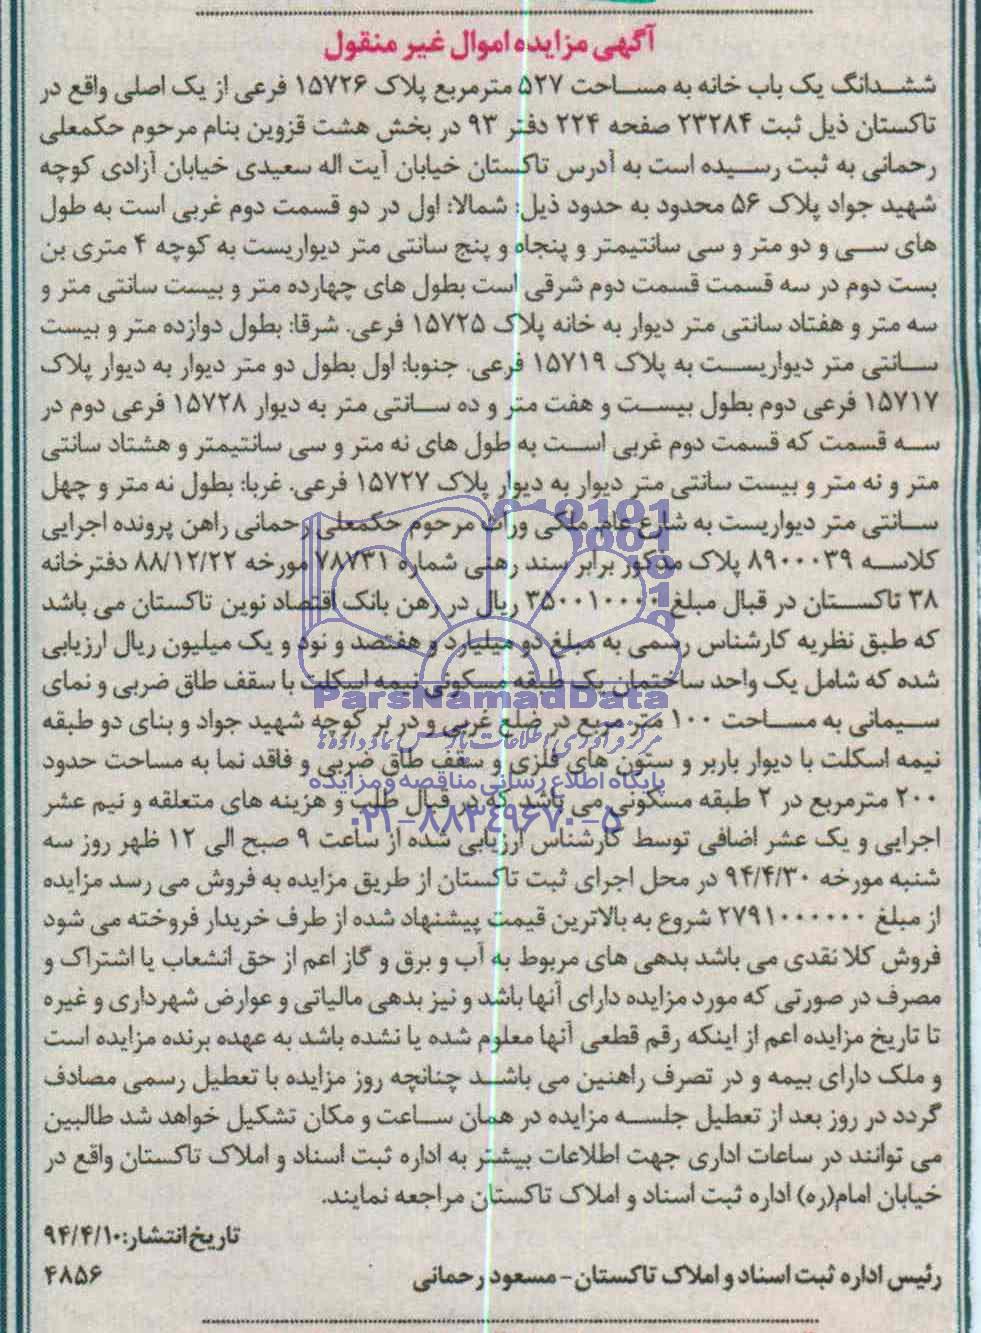 آگهی مزایده اموال غیر منقول
ششدانگ یک باب خانه به مساحت ۵۲۷ مترمربع پلاک ۱۵۷۲۶ فرعی از یک اصلی واقع در
تاکستان ذیل ثبت ۲۳۲۸۴ صفحه ۲۲۴ دفتر ۹۳ در بخش هشت قزوین بنام مرحوم حکمعلی
رحمانی به ثبت رسیده است به آدرس تاکستان خیابان آیت اله سعیدی خیابان آزادی کوچه
شهید جواد پلاک ۵۶ محدود به حدود ذیل: شمالا: اول در دو قسمت دوم غربی است به طول
های سی و دو متر و سی سانتیمتر و پنجاه و پنج سانتی متر دیواریست به کوچه ۴ متری بن
بست دوم در سه قسمت قسمت دوم شرقی است بطول های چهارده متر و بیست سانتی متر و
سه متر و هفتاد سانتی متر دیوار به خانه پلاک ۱۵۷۲۵ فرعی. شرقا: بطول دوازده متر و بیست
سانتی متر دیواریست به پلاک ۱۵۷۱۹ فرعی. جنوبا: اول بطول دو متر دیوار به دیوار پلاک
۱۵۷۱۷ فرعی دوم بطول بیست و هفت متر و ده سانتی متر به دیوار ۱۵۷۲۸ فرعی دوم در
سه قسمت که قسمت دوم غربی است به طول های نه متر و سی سانتیمتر و هشتاد سانتی
متر و نه متر و بیست سانتی متر دیوار به دیوار پلاک ۱۵۷۲۷ فرعی. غربا: بطول نه متر و چهل
سانتی متر دیواریست به شارع عام. ملکی وراث مرحوم حکمعلی رحمانی راهن پرونده اجرایی
کلاسه ۸۹۰۰۰۳۹ پلاک مذکور برابر سند رهنی شماره ۷۸۷۳۱ مورخه ۸۸/۱۲/۲۲ دفترخانه
۳۸ تاکستان در قبال مبلغ ۳۵۰۰۱۰۰۰۰ ریال در رهن بانک اقتصاد نوین تاکستان می باشد
که طبق نظریه کارشناس رسمی به مبلغ دو میلیارد و هفتصد و نود و یک میلیون ریال ارزیابی
شده که شامل یک واحد ساختمان یک طبقه مسکونی نیمه اسکلت با سقف طاق ضربی و نمای
ParsNamadData
سیمانی به مساحت ۱۰۰ متر مربع در ضلع غربی و در بر کوچه شهید جواد و بنای دو طبقه
مرکز فرآوری اطلاعات پارس نماد داده‌ها
نیمه اسکلت با دیوار باربر و ستون های فلزی و سقف طاق ضربی و فاقد نما به مساحت حدود
پایگاه اطلاع رسانی مناقصه و مزایده
۲۰۰ مترمربع در ۲ طبقه مسکونی می باشد که در قبال طلب و هزینه های متعلقه و نیم عشر
۰۲۱-۸۸۳۴۹۶۷۰-۵
اجرایی و یک عشر اضافی توسط کارشناس ارزیابی شده از ساعت ۹ صبح الی ۱۲ ظهر روز سه
شنبه مورخه ۹۴/۴/۳۰ در محل اجرای ثبت تاکستان از طریق مزایده به فروش می رسد مزایده
از مبلغ ۲۷۹۱۰۰۰۰۰۰ شروع به بالاترین قیمت پیشنهاد شده از طرف خریدار فروخته می شود
فروش کلا نقدی می باشد بدهی های مربوط به آب و برق و گاز اعم از حق انشعاب یا اشتراک و
مصرف در صورتی که مورد مزایده دارای آنها باشد و نیز بدهی مالیاتی و عوارض شهرداری و غیره
تا تاریخ مزایده اعم از اینکه رقم قطعی آنها معلوم شده یا نشده باشد به عهده برنده مزایده است
و ملک دارای بیمه و در تصرف راهنین می باشد چنانچه روز مزایده با تعطیل رسمی مصادف
گردد در روز بعد از تعطیل جلسه مزایده در همان ساعت و مکان تشکیل خواهد شد طالبین
می توانند در ساعات اداری جهت اطلاعات بیشتر به اداره ثبت اسناد و املاک تاکستان واقع در
خیابان امام(ره) اداره ثبت اسناد و املاک تاکستان مراجعه نمایند.
تاریخ انتشار: ۹۴/۴/۱۰
رئیس اداره ثبت اسناد و املاک تاکستان- مسعود رحمانی ۴۸۵۶